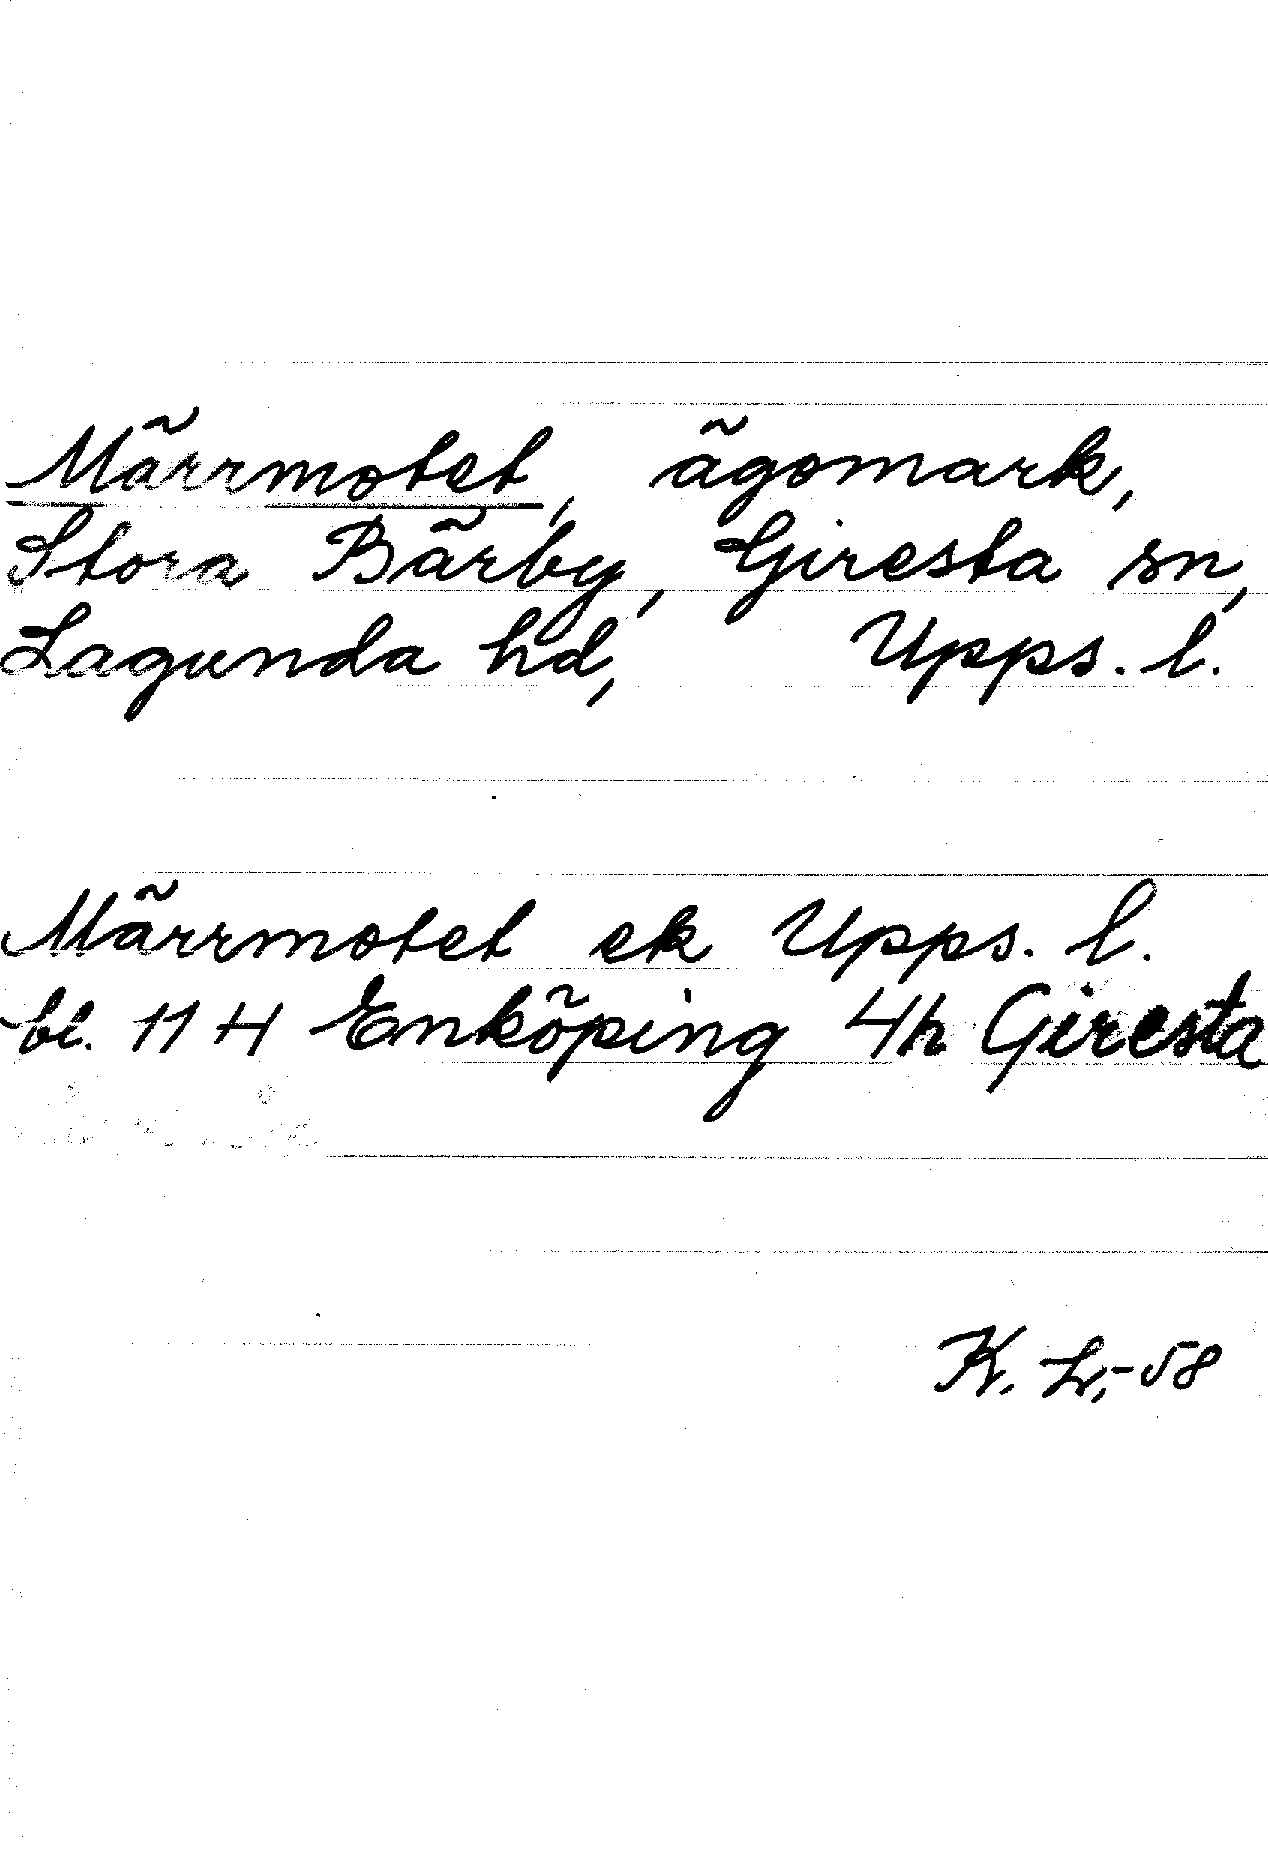 Märrmotet, ägomark,
Stora Bärby, Giresta sn,
Lagunda hd, Upps. l.
Märrmotet ek Upps. l.
bl. 11 H Enköping 4h Giresta
K. L,-58